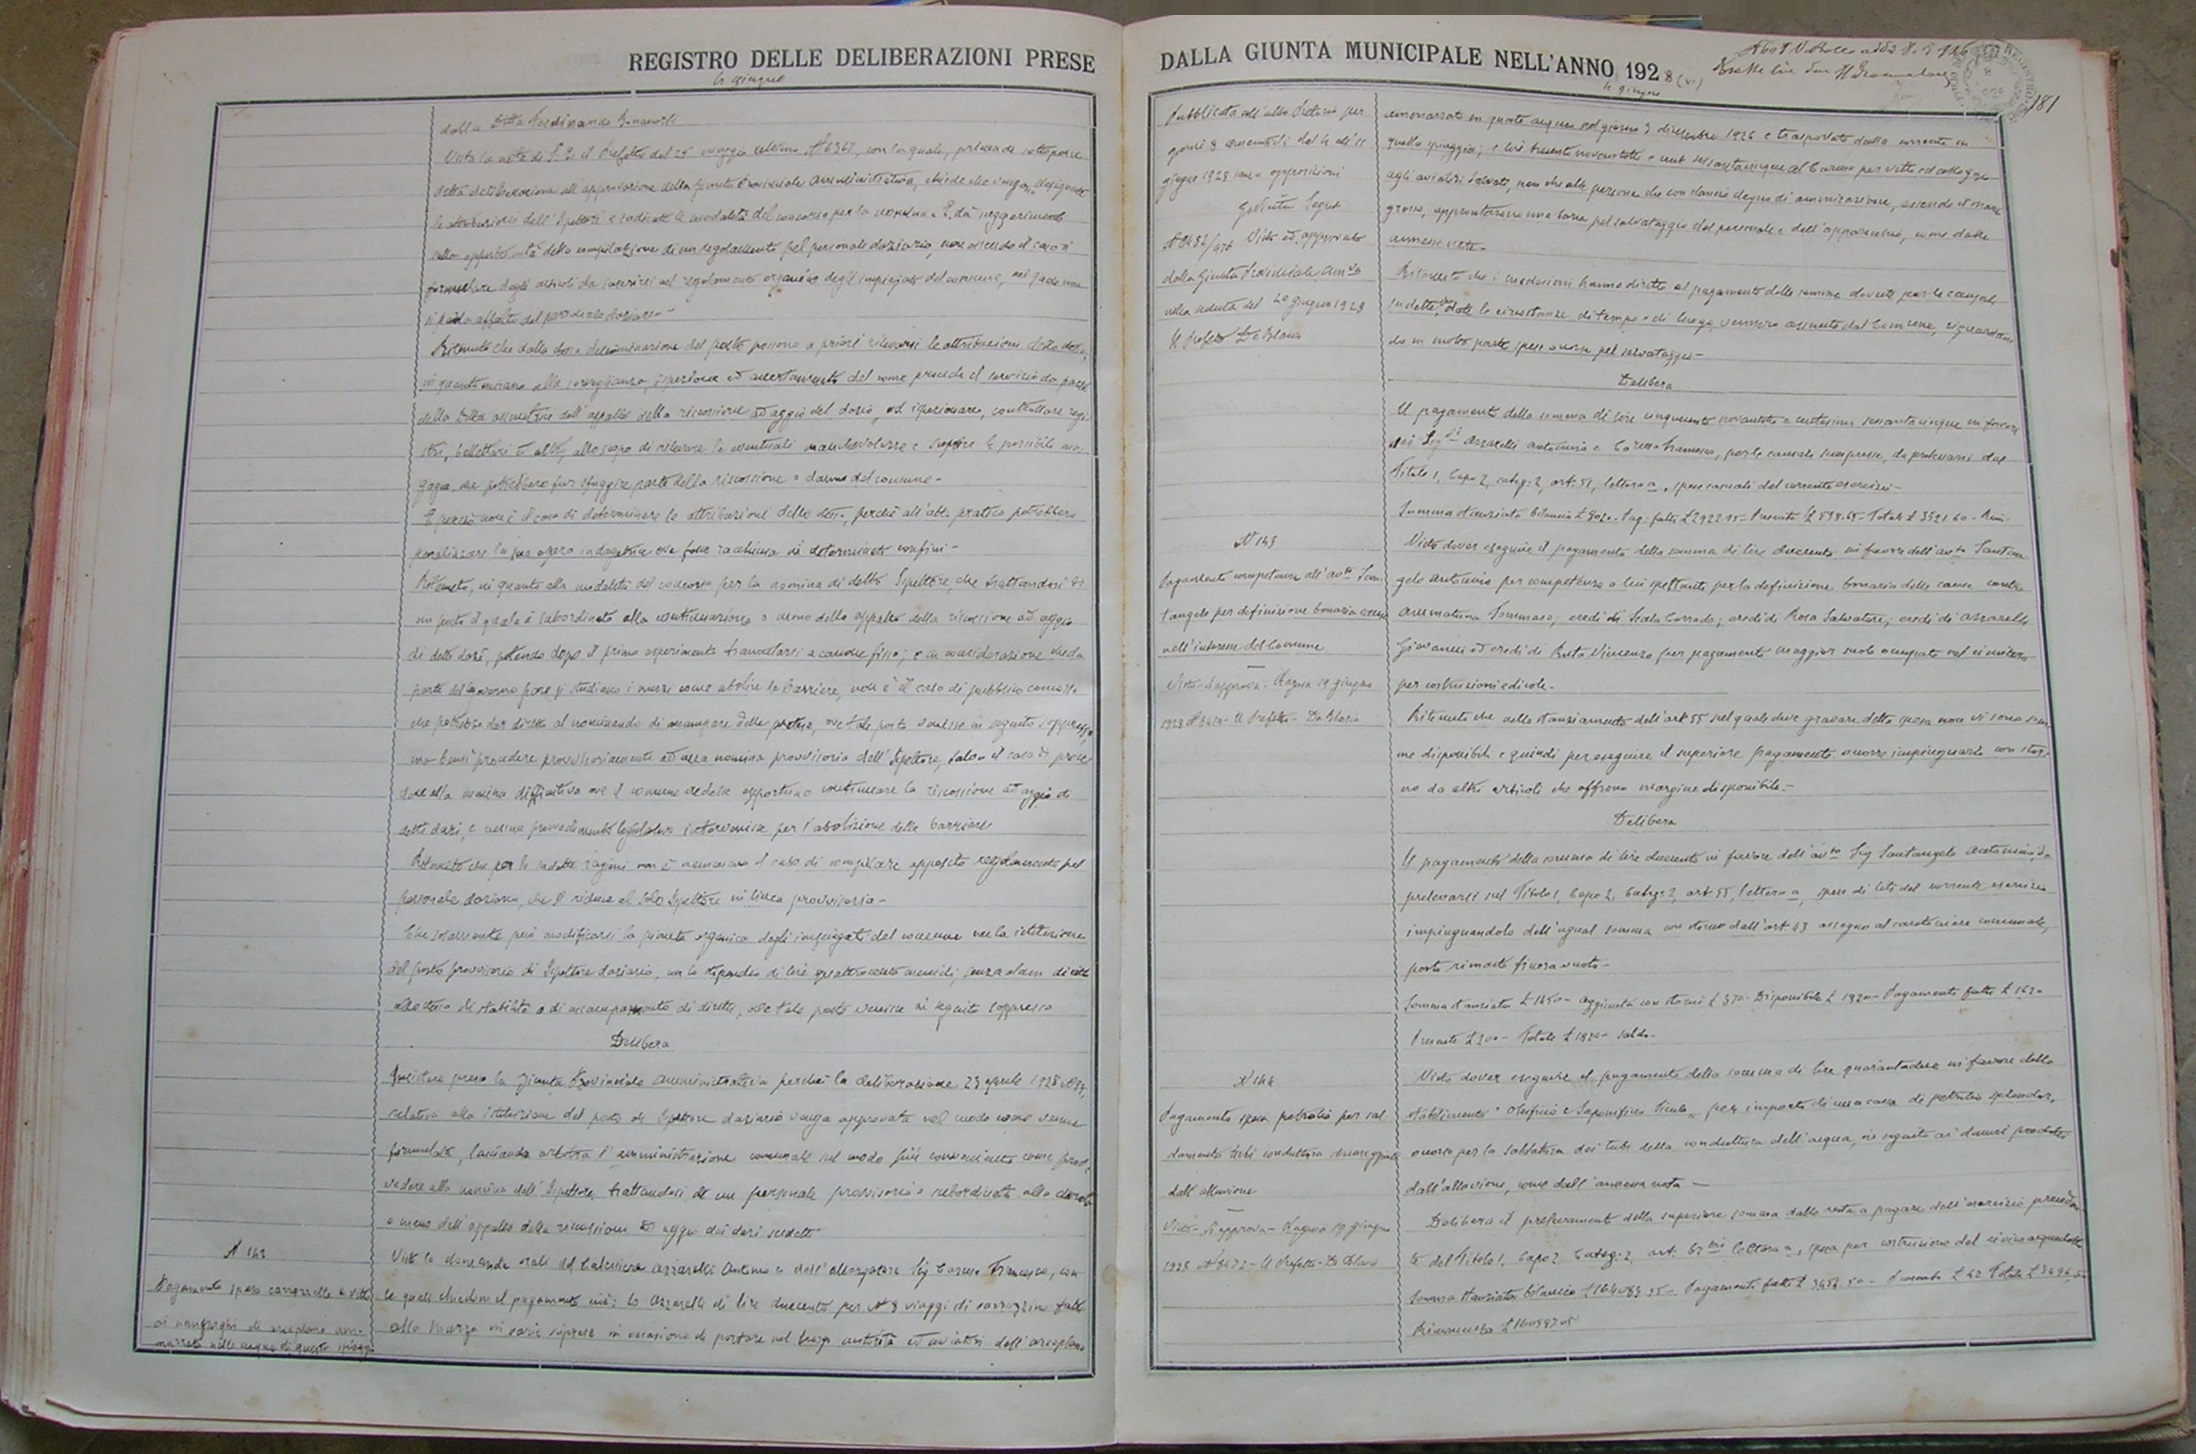 REGISTRO DELLE DELIBERAZIONI PRESE
4 giugno
dalla Ditta Ferdinando
Vista la nota di S. E. il Prefetto del 25 maggio ultimo N 6367, con la quale, prima di sottoporre
detta deliberazione all'approvazione della Giunta Provinciale Amministrativa, chiede che vengano designate
le attribuzioni dell'Ispettore e indicate le modalità del concorso per la nomina e dà suggerimenti
sulla opportunità della compilazione di un regolamento pel personale daziario, non essendo il caso di
formulare degli articoli da inserirsi nel regolamento organico degli impiegati del comune, nel quale non
si parla affatto del personale daziario -
Ritenuto che dalla stessa denominazione del posto possono a priori rilevarsi le attribuzioni dello stesso,
in quanto mirano alla sorveglianza, ispezione ed accertamento del come procede il servizio da parte
della Ditta assuntrice dell'appalto della riscossione ad aggio del dazio, ed ispezionare, controllare regi
stri, bollettari ed altro, allo scopo di rilevare le eventuali manchevolezze e scoprire le possibili ma-
gagne, che potrebbero far sfuggire parte della riscossione a danno del comune -
E perciò non è il caso di determinare le attribuzioni dello stesso, perchè all'atto pratico potrebbero
paralizzare la sua opera indagatrice ove fosse racchiusa in determinati confini -
Ritenuto, in quanto alla modalità del concorso per la nomina di detto Ispettore, che trattandosi di
un posto il quale è subordinato alla continuazione o meno dello appalto della riscossione ad aggio
di detti dazi, potendo dopo il primo esperimento tramutarsi a canone fisso; e in considerazione che da
parte del governo pare si studiano i mezzi come abolire le barriere, non è il caso di pubblico concorso
che potrebbe dar diritto al nominando di accampare delle pretese, ove tale posto venisse in seguito soppresso,
ma bensì procedere provvisoriamente ad una nomina provvisoria dell'Ispettore, salvo il caso di proce
dere alla nomina diffinitiva ove il comune crederà opportuno continuare la riscossione ad aggio di
detti dazi, e nessun provvedimento legislativo interverrà per l'abolizione delle barriere
Ritenuto che per le sudette ragioni non è nemmeno il caso di compilare apposito regolamento pel
personale daziario, che si riduce al solo Ispettore in linea provvisoria -
Che solamente può modificarsi la pianta organica degli impiegati del comune con la istituzione
del posto provvisorio di Ispettore daziario, con lo stipendio di lire quattrocento mensili, senza alcun diritto
allo stesso di stabilità o di accampamento di diritti, ove tale posto venisse in seguito soppresso
Delibera
Insistere presso la Giunta Provinciale Amministrativa perchè la deliberazione 23 aprile 1928
relativa alla istituzione del posto di Ispettore daziario venga approvata nel modo come venne
formulata, lasciando arbitra l'amministrazione comunale nel modo più conveniente come prov-
vedere alla nomina dell'Ispettore, trattandosi di un personale provvisorio e subordinato alla durata
o meno dell'appalto della riscossione ad aggio dei dazi sudetti
N 142
Pagamento spesa carrozzelle e vitto
ai naufraghi di areoplano am-
marrato nelle acque di questa spiaggia
Viste le domande orali del vetturiere Azzarelli Antonio e dell'albergatore Sig Caruso Francesco, con
le quali chiedono il pagamento cioè: lo Azzarelli di lire duecento per N 8 viaggi di carrozzino fatti
alla Marza in varie riprese in occasione di portare sul luogo autorità ed aviatori dell'areoplano
DALLA GIUNTA MUNICIPALE NELL'ANNO 1928 (VI)
4 giugno
181
Pubblicata all'albo Pretorio per
giorni 8 consecutivi dal 4 all'11
giugno 1928 senza opposizioni
N 8482/ Visto ed approvato
dalla Giunta Provinciale Amm.va
nella seduta del 20 giugno 1928
Il Prefetto De Blasio
ammarrato in queste acque nel giorno 3 dicembre 1926 e trasportato dalla corrente in
quella spiaggia; e lire trecentonovantotto e cent sessantacinque al Caruso per vitto ed alloggio
agli aviatori salvati, non che alle persone che con slancio degno di ammirazione, essendo il mare
grosso, approntarono una barca pel salvataggio del personale e dell'apparecchio, come dalle
annesse note -
Ritenuto che i medesimi hanno diritto al pagamento delle somme dovute per le causali
sudette, che date le circostanze di tempo e di luogo vennero assunte dal Comune, riguardan
do in molta parte spese occorse pel salvataggio -
Delibera
Il pagamento della somma di lire cinquecento novantotto e centesimi sessantacinque in favore
dei Sig.ri Azzarelli Antonino e Caruso Francesco, per le causali suespresse, da prelevarsi dal
Titolo 1, Capo 2, categ. 2, art. 51, lettera a, spese casuali del corrente esercizio -
Somma stanziata bilancio £ Pag. fatti £ 2922.95 - Presente £ 598.65 - Totale £ 3521.60 - Rim-
N 143
Pagamento competenze all'avv.to San-
tangelo per definizione bonaria cause
nell'interesse del Comune
Visto - Si approva - Ragusa 19 giugno
1928 Il Prefetto - De Blasio
Visto dover eseguire il pagamento della somma di lire duecento in favore dell'avv.to Santan
gelo Antonino per competenze a lui spettanti per la definizione bonaria delle cause contro
Ammatuna Tommaso; eredi di Scala Corrado; eredi di Rosa Salvatore; eredi di Azzarelli
Giovanni ed eredi di Ruta Vincenzo per pagamento maggior suolo occupato nel cimitero
per costruzioni edicole -
Ritenuto che nello stanziamento dell'art 55 sul quale deve gravare detta spesa non vi sono som
me disponibili e quindi per eseguire il superiore pagamento occorre impinguarlo con stor-
no da altri articoli che offrono margine disponibile -
Delibera
Il pagamento della somma di lire duecento in favore dell'avv.to Sig Santangelo Antonino, da
prelevarsi sul Titolo 1, Capo 2, Categ. 2, art 55, lettera a, spese di liti del corrente esercizio
impinguandolo dell'ugual somma con storno dall'art 43 assegno al cantoniere comunale,
posto rimasto finora vuoto -
Somma stanziata £ 1450 - aggiunta con storni £ 370 - Disponibile £ 1820 - Pagamenti fatti £ 1620
Presente £ 200 - Totale £ 1820 - saldo -
N 144
Pagamento spesa petrolio per sal-
damento tubi conduttura danneggiata
dall'alluvione
Visto - Si approva - Ragusa 19 giugno
1928 N 8472 - Il Prefetto - De Blasio
Visto dover eseguire il pagamento della somma di lire quarantadue in favore dello
stabilimento "Oleificio e Saponificio Siculo" per importo di una cassa di petrolio splendor,
occorso per la saldatura dei tubi della conduttura dell'acqua, in seguito ai danni prodotti
dall'alluvione, come dall'annessa nota -
Delibera il prelevamento della superiore somma dalle resta a pagare dell'esercizio preceden
te del Titolo 1, Capo 2 Categ. 2, art. 67 bis lettera a, spesa per costruzione del civico acquedotto
Somma stanziata bilancio £ 164089.55 - Pagamenti fatti £ 3450.50 - Presente £ 42 Totale £ 3492.50
Rimanenza £ 160597.05